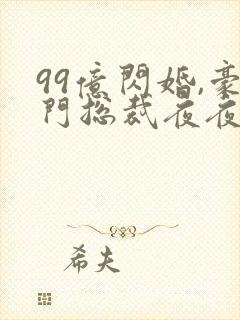 99億閃婚,豪
門総裁夜夜
希夫